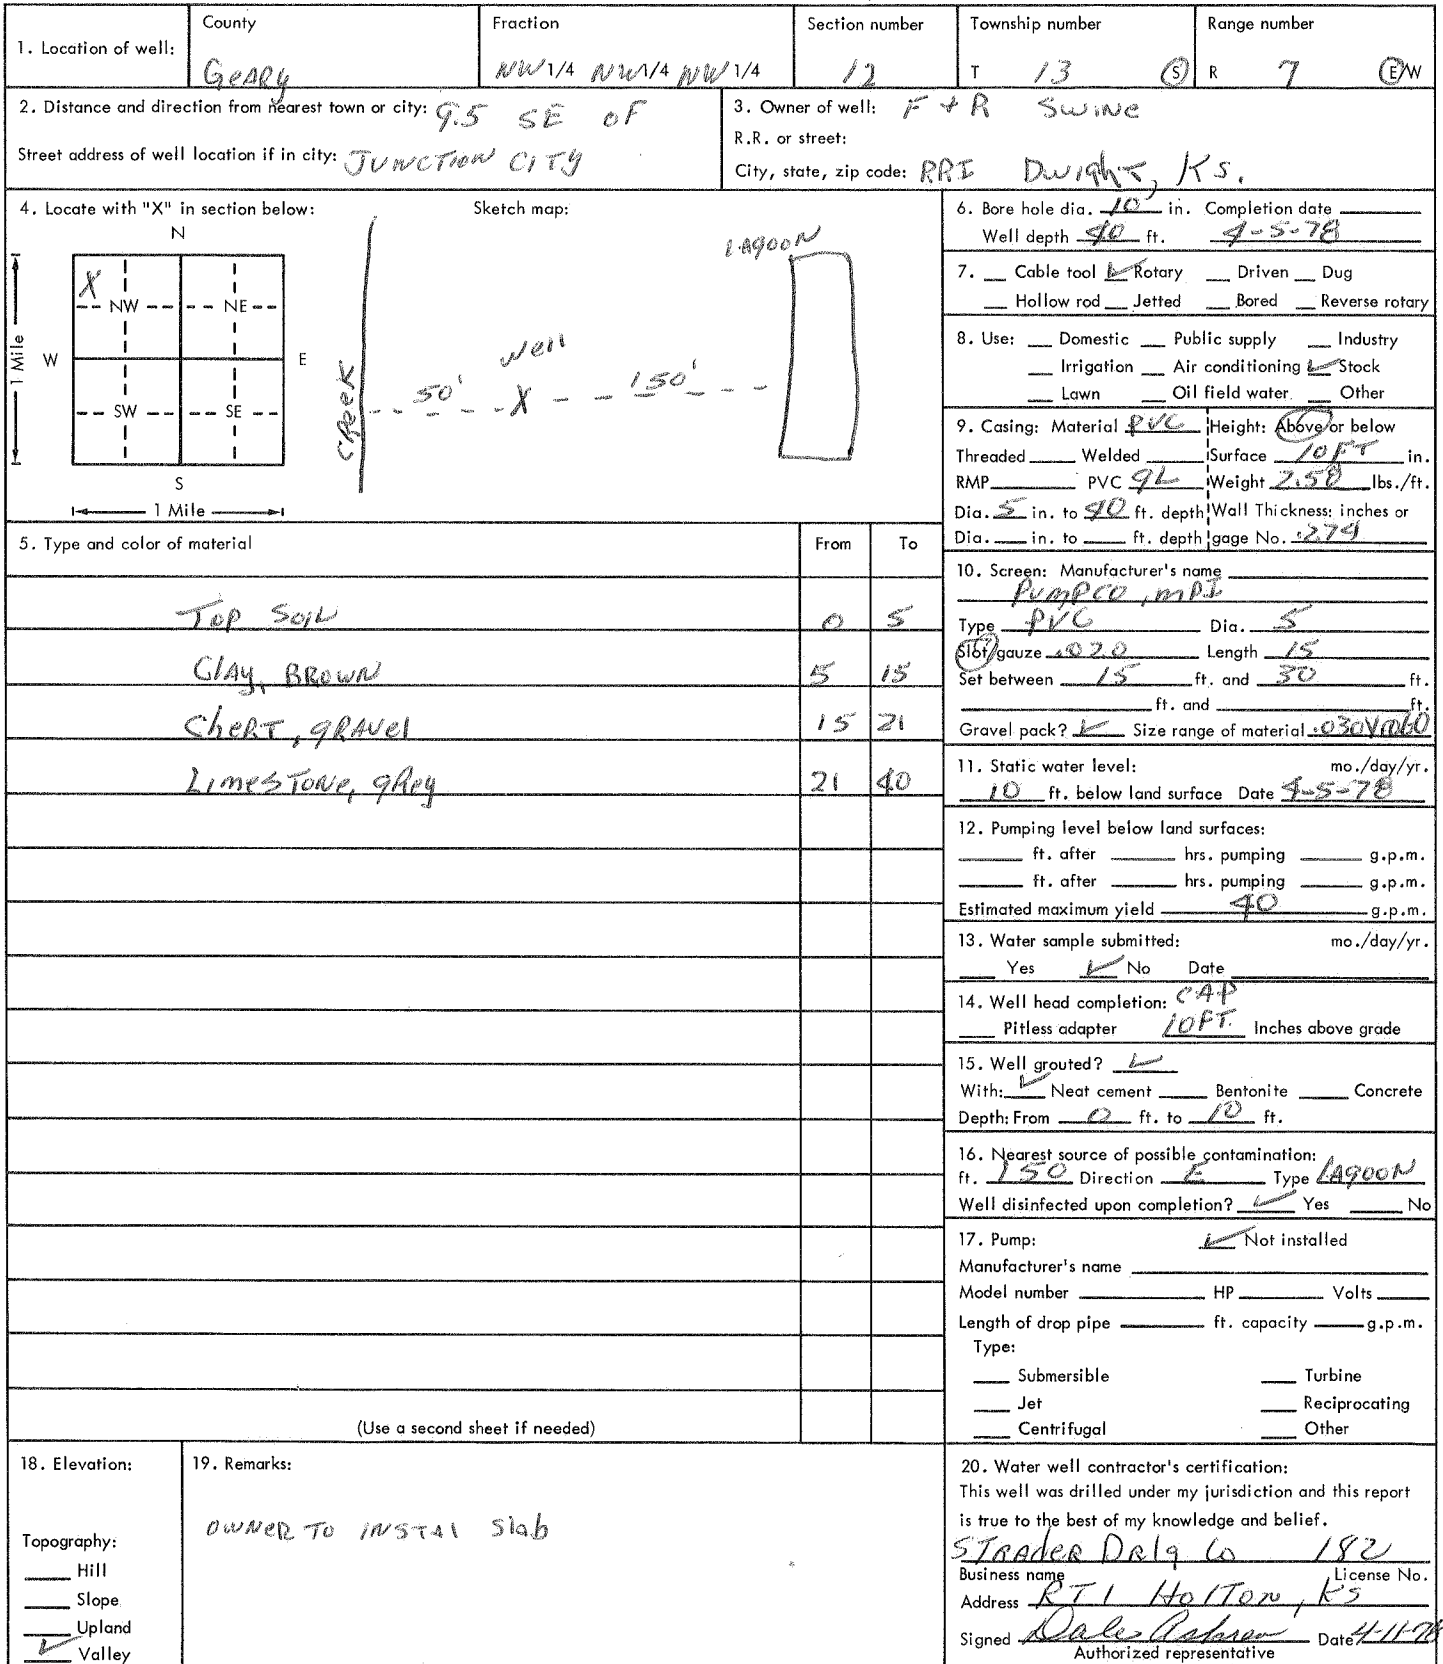 1. Location of well:
County
Geary
Fraction
NW 1/4 NW 1/4 NW 1/4
Section number
12
Township number
T 13 S
Range number
R 7 E/W
2. Distance and direction from nearest town or city: 9.5 SE OF
Street address of well location if in city: JUNCTION CITY
3. Owner of well: F + R SWINE
R.R. or street:
City, state, zip code: RR1 Dwight, Ks.
4. Locate with "X" in section below:
Sketch map:
N
X
NW
NE
W
E
SW
SE
S
1 Mile
1 Mile
LAGOON
Well
50' X 150'
CREEK
5. Type and color of material From To
TOP SOIL 0 5
Clay, BROWN 5 15
CheRT, gRAVel 15 21
LimesTONe, gRey 21 40
(Use a second sheet if needed)
6. Bore hole dia. 10 in. Completion date
Well depth 40 ft. 4-5-78
7. Cable tool ✓ Rotary Driven Dug
Hollow rod Jetted Bored Reverse rotary
8. Use: Domestic Public supply Industry
Irrigation Air conditioning ✓ Stock
Lawn Oil field water Other
9. Casing: Material PVC Height: Above or below
Threaded Welded Surface 10 FT in.
RMP PVC GL Weight 2.58 lbs./ft.
Dia. 5 in. to 40 ft. depth Wall Thickness: inches or
Dia. in. to ft. depth gage No. .274
10. Screen: Manufacturer's name
PUMPCO, MPI
Type PVC Dia. 5
Slot/gauze .020 Length 15
Set between 15 ft. and 30 ft.
ft. and ft.
Gravel pack? ✓ Size range of material .030
11. Static water level: mo./day/yr.
10 ft. below land surface Date 4-5-78
12. Pumping level below land surfaces:
ft. after hrs. pumping g.p.m.
ft. after hrs. pumping g.p.m.
Estimated maximum yield 40 g.p.m.
13. Water sample submitted: mo./day/yr.
Yes ✓ No Date
14. Well head completion: CAP
Pitless adapter 10FT. Inches above grade
15. Well grouted? ✓
With: ✓ Neat cement Bentonite Concrete
Depth: From 0 ft. to 10 ft.
16. Nearest source of possible contamination:
ft. 150 Direction E Type LAGOON
Well disinfected upon completion? ✓ Yes No
17. Pump: ✓ Not installed
Manufacturer's name
Model number HP Volts
Length of drop pipe ft. capacity g.p.m.
Type:
Submersible Turbine
Jet Reciprocating
Centrifugal Other
18. Elevation:
Topography:
Hill
Slope
Upland
✓ Valley
19. Remarks:
OWNER TO INSTAl Slab
20. Water well contractor's certification:
This well was drilled under my jurisdiction and this report
is true to the best of my knowledge and belief.
STRADER DRlg Co 182
Business name License No.
Address RT 1 HolTon, Ks
Signed Dale Date 4-11-78
Authorized representative